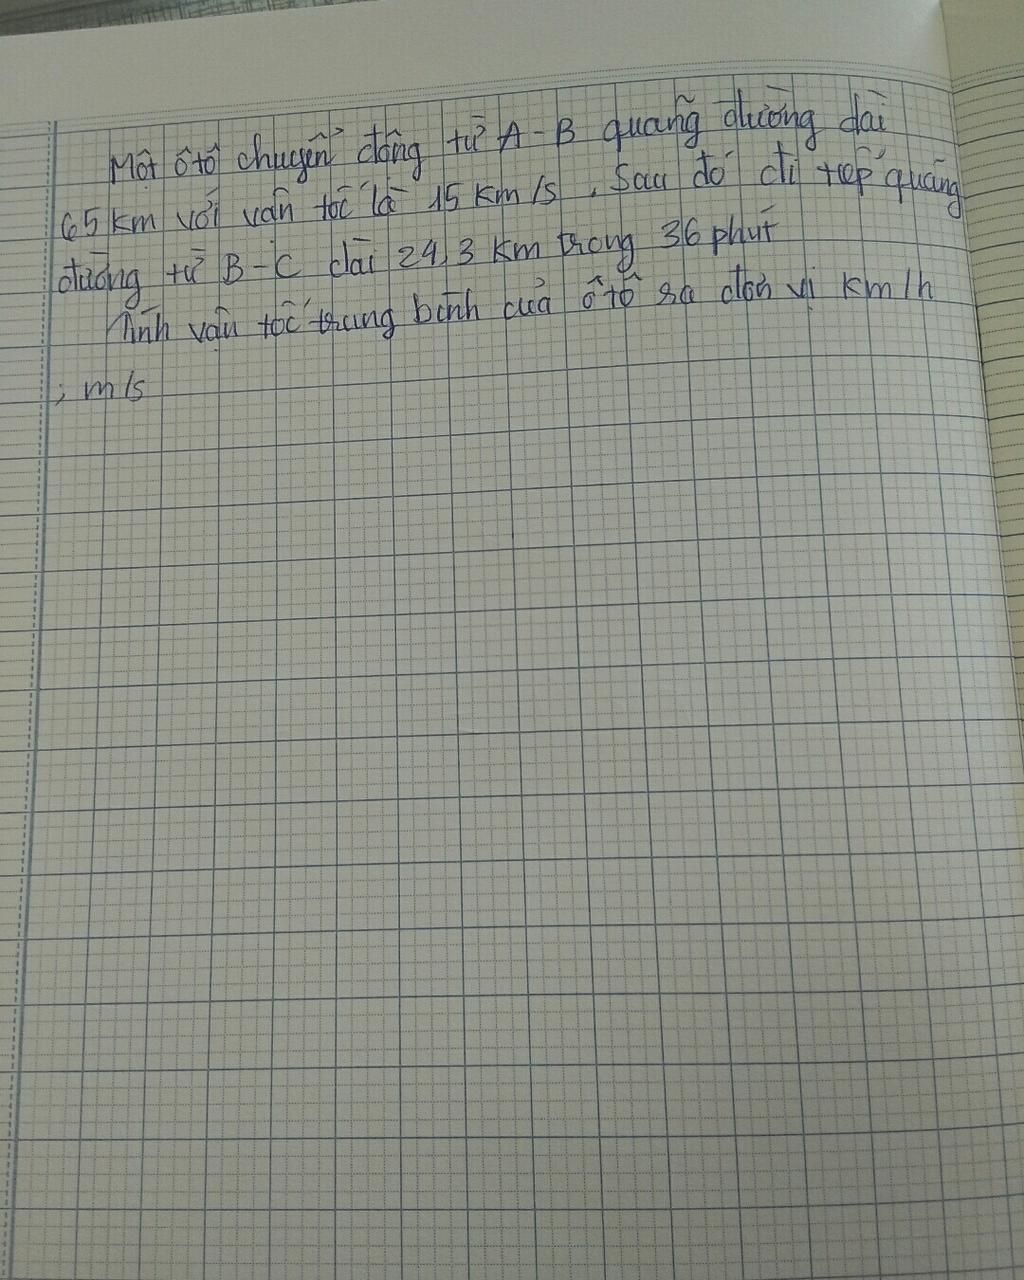 Một ôtô chuyển động từ A-B quãng đường dài
65 km với vân tốc là 15 km/s, Sau đó đi tiếp quãng
đường từ B-C dài 24,3 km trong 36 phút
Tính vận tốc trung bình của ôtô ra đơn vị km/h
; m/s